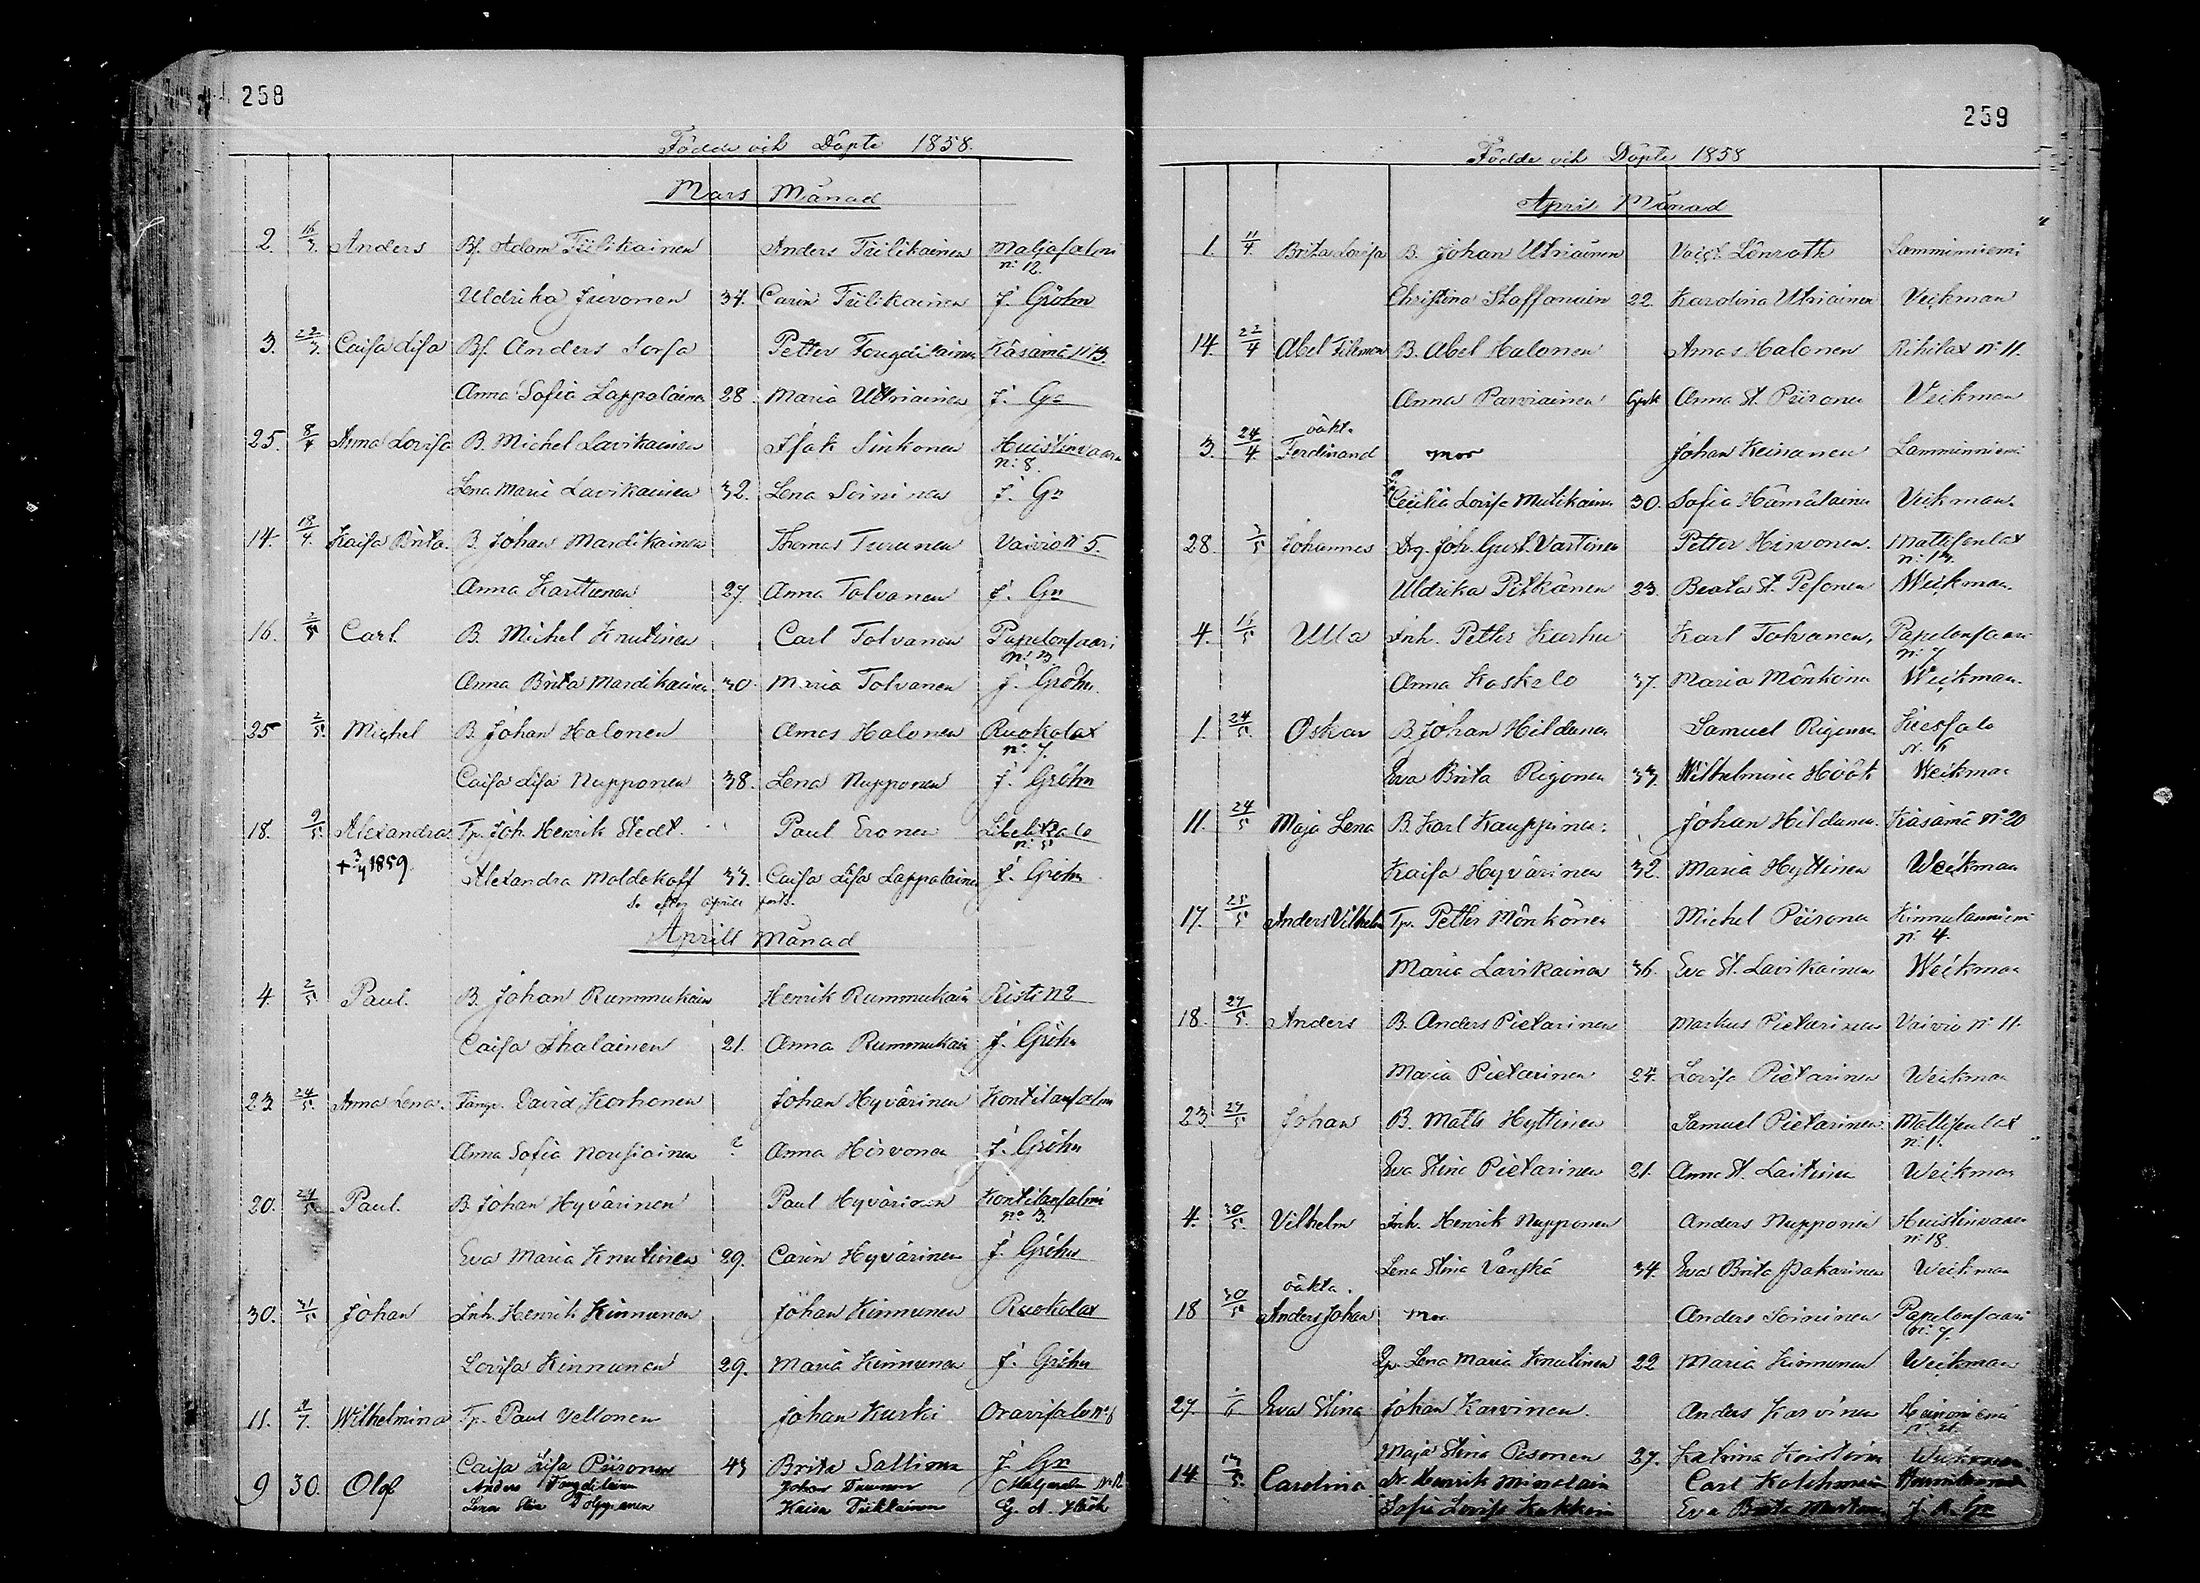 258
Födde och Döpte 1858.
Mars Månad
2. 16/3. Anders Bf. Adam Tiilikainen Anders Tiilikainen Maljasalmi
n: 12.
Uldrika Juvonen 34. Carin Tiilikainen J. Gröhn
3. 22/3. Caisa Lisa Bf. Anders Sorsa Petter Käsämä
Anna Sofia Lappalainen 28. Maria J. Gn
25. 8/4 Anna Lovisa B. Michel Lavikainen Isak Sinkonen Huistinvaara
n: 8.
Lena Maria Lavikainen 32. Lena Soininen J. Gn
14. 18/4. Kaisa Brita B. Johan Mardikainen Thomas Turunen Vaivio N: 5.
Anna Karttunen 27. Anna Tolvanen J. Gn
16. 2/5 Carl B. Michel Knutinen Carl Tolvanen Papelonsaari
Anna Brita Mardikainen 30. Maria Tolvanen J. Gröhn.
25 2/5. Michel B. Johan Halonen Amos Halonen Ruokolax
n: 7.
Caisa Lisa Nupponen 38. Lena Nupponen J. Gröhn
18. 9/5. Alexandra Tp. Joh. Henrik Stedt. Paul Eronen Libelitsalo
n: 5
1859 Alexandra Moldakoff 33. Caisa Lisa Lappalainen J. Gröhn
Se efter Aprill
Aprill Månad
4 2/5. Paul. B. Johan Rummukain Henrik Rummukain Risti N2
Caisa Ihalainen 21. Anna Rummukain J. Gröhn
23 24/5. Anna Lena. David Korhonen Johan Hyvärinen Kontilansalmi
Anna Sofia Nousiainen ? Anna Hirvonen J. Gröhn
20. 24/5. Paul. B. Johan Hyvärinen Paul Hyvärinen Kontilansalmi
Eva Maria Knutinen 29. Carin Hyvärinen J. Gröhn
30. 31/5. Johan Inh. Henrik Kinnunen Johan Kinnunen Ruokolax
Lovisa Kinnunen 29. Maria Kinnunen J. Gröhn
11. 4/7. Wilhelmina Tp. Paul Veltonen Johan Kurki Oravisalo
Caisa Lisa Piironen 43 Brita Sallinen J. Gn
9 30. Olof Anders
Lena Kaisa Tiikkainen G. A.
259
Födde och Döpte 1858
April Månad
1. 11/4. Brita Lovisa B. Johan Utriainen Lönroth Lamminniemi
Christina Staffanain 22. Karolina Utriainen Veikman
14. 22/4 Abel Filemon B. Abel Halonen Amos Halonen Rihilax n: 11.
Anna Parviainen Anna St. Piironen Veikman
oäkt.
3. 24/4. Ferdinand mor Johan Keinanen Lamminniemi
Cecilia Lovisa Mulikainen 30. Sofia Hämäläinen Veikman.
28. Johannes Drg. Joh. Gust. Vartinen Petter Hirvonen. Mattisenlax
Uldrika Pitkänen 23. Beata St. Pesonen Weikman.
4. Ulla Inh. Petter Kurhu Karl Tolvanen, Papelonsaari
n: 7
Anna Koskelo 37. Maria Mönkönen Weikman.
1. 24/5. Oskar B. Johan Hildunen Samuel Rigonen Kiessalo
Eva Brita Rigonen 33. Wilhelmina Höök Weikman
11. 24/5 Maja Lena B. Karl Kauppinen. Johan Hildunen. Käsämä N: 20
Kaisa Hyvärinen 32. Maria Hyttinen Weikman
17. 25/5 Anders Vilhelm Tp. Petter Mönkönen Michel Piironen Kinnulanniemi
n: 4.
Maria Lavikainen 36. Eva St. Lavikainen Weikman
18. 27/5. Anders B. Anders Pietarinen Markus Pietarinen Vaivio N: 11.
Maria Pietarinen 24. Lovisa Pietarinen Weikman
23. 29/5 Johan B. Matts Hyttinen Samuel Pietarinen Mattisenlax
n: 1.
Eva Stina Pietarinen 21. Anna St. Laitinen Weikman
4. 30/5. Vilhelm Inh. Henrik Nupponen Anders Nupponen Huistinvaara
n: 18.
Lena Stina Vänskä 34. Eva Brita Pakarinen Weikman
oäkta.
18 30/5 Anders Johan mor Anders Soininen Papelonsaari
n: 7.
Lena Maria Knutinen 22 Maria Kinnunen Weikman
27. Eva Stina Johan Karvinen. Anders Karvinen
Maja Stina Pesonen 27. Katrina Weikman
14. Carolina Henrik Carl
Sofia Lovisa Eva Brita J. A. Gn